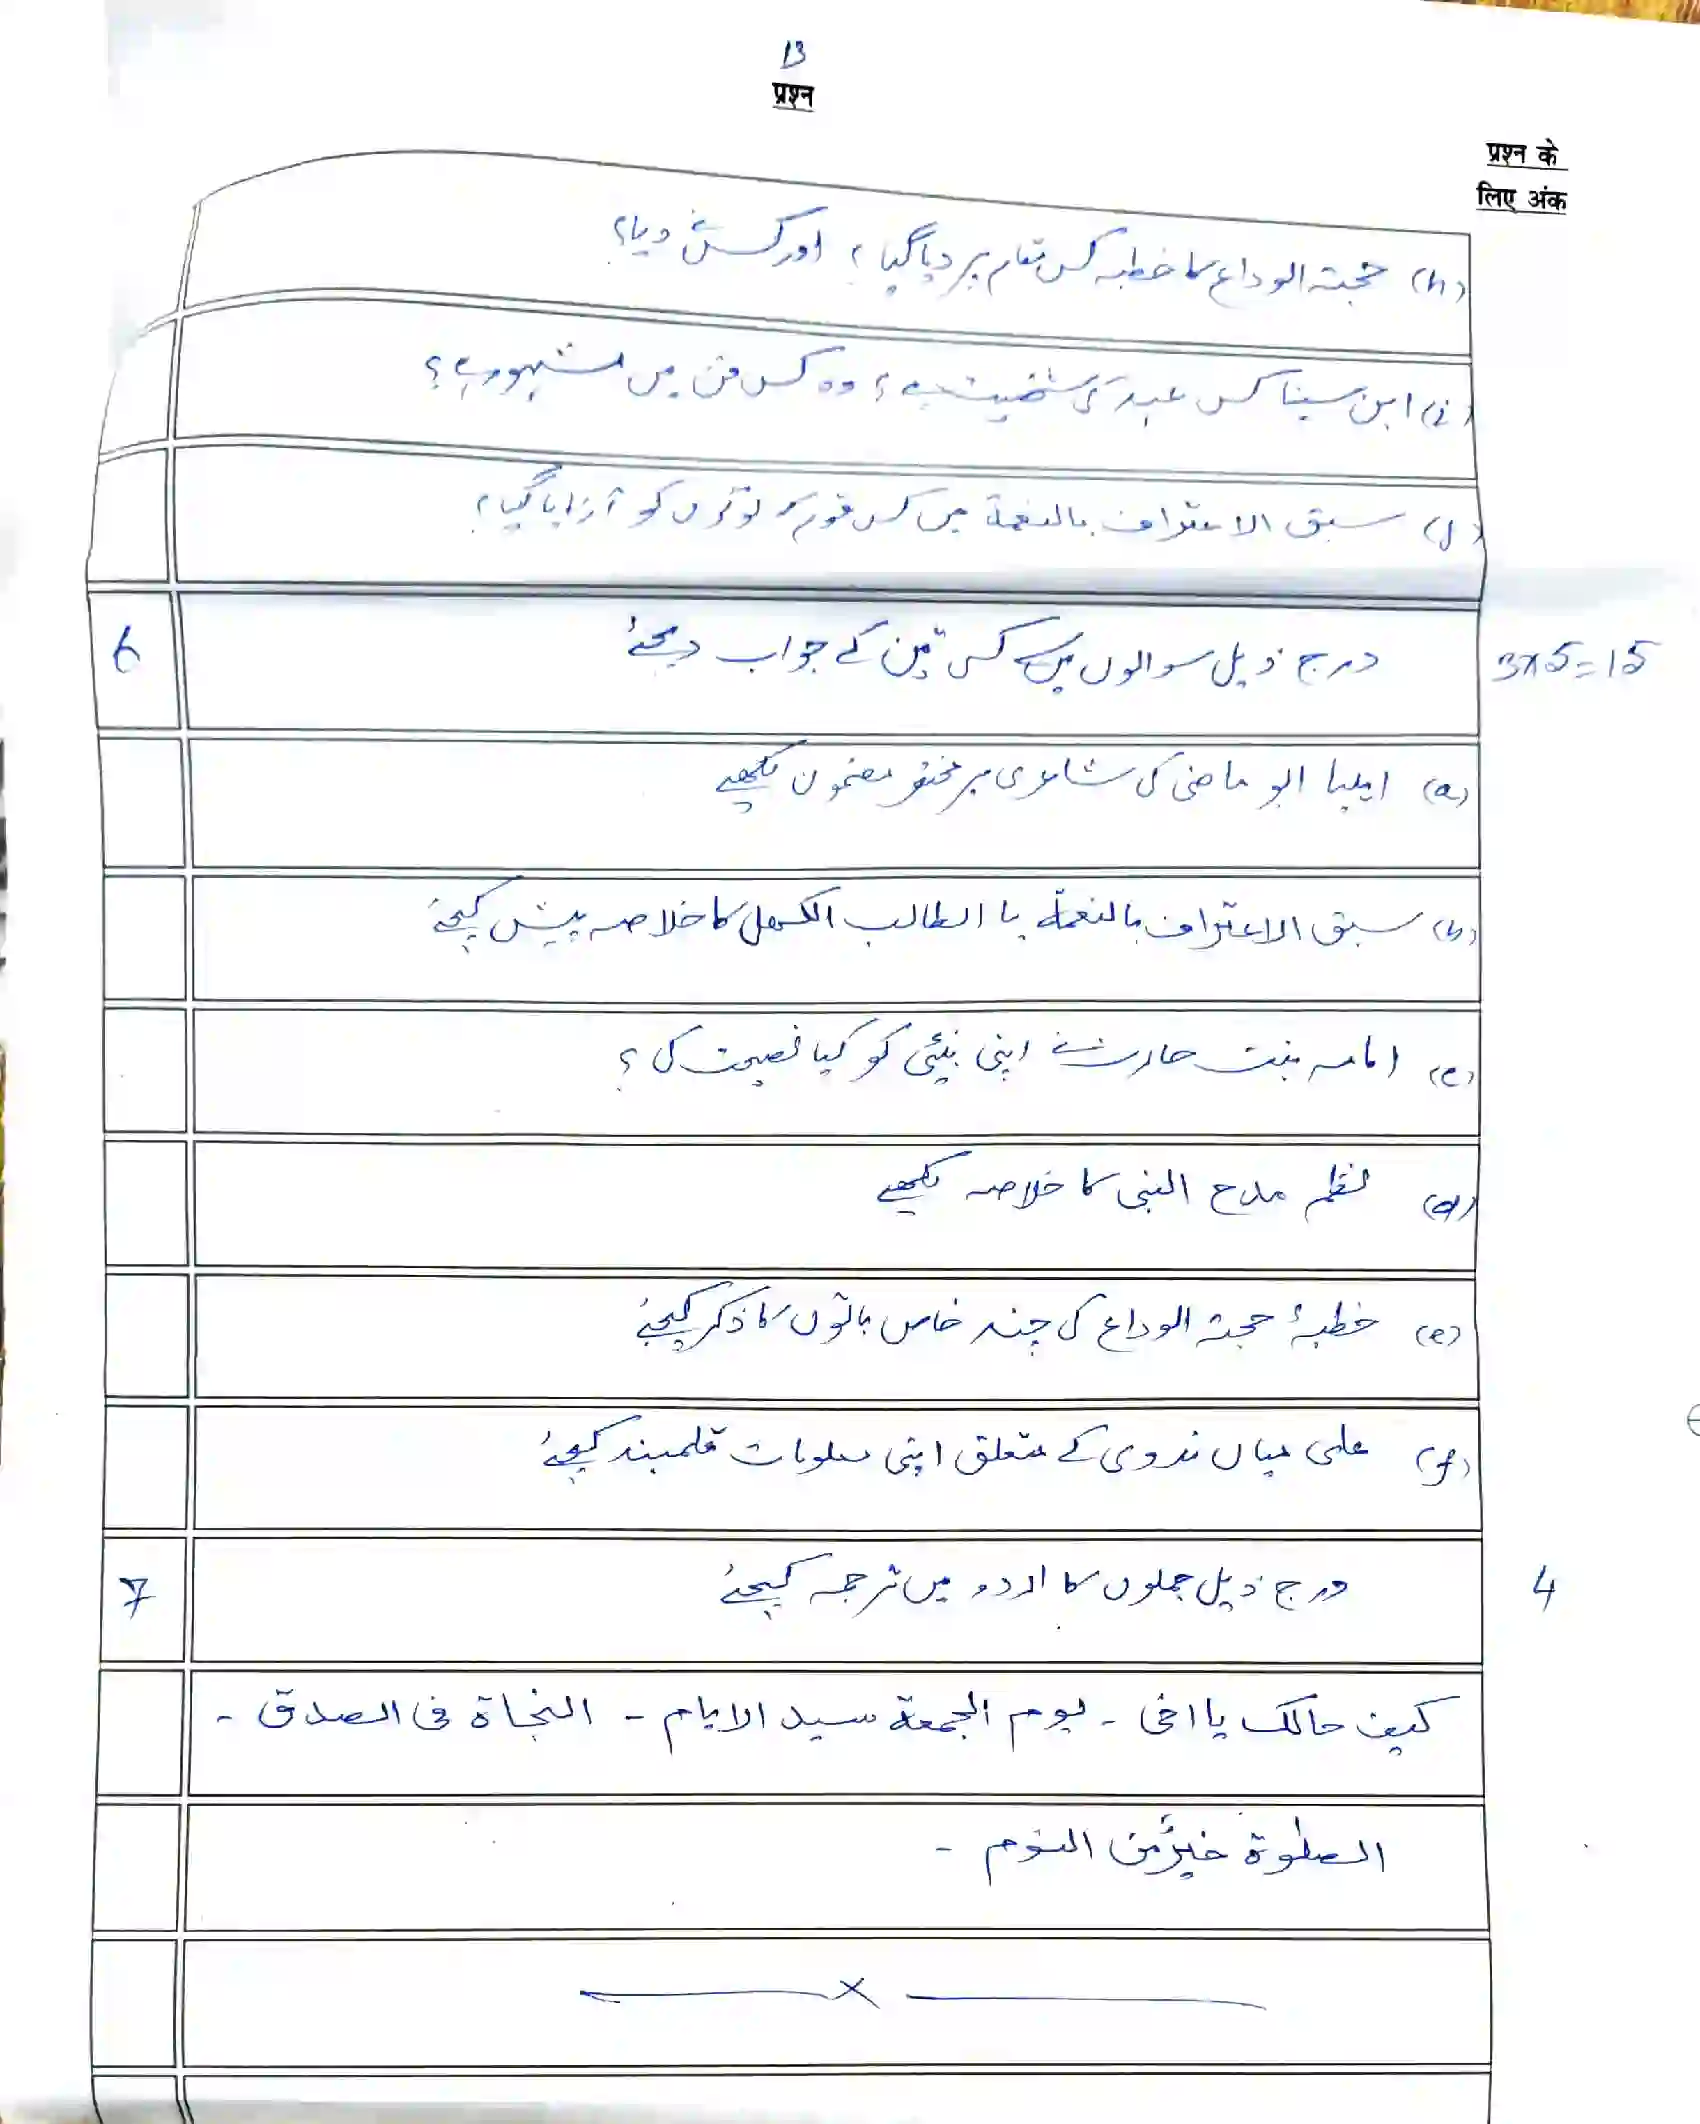 13
प्रश्न
प्रश्न के
लिए अंक
(h) حجتہ الوداع کا خطبہ کس مقام پر دیا گیا ؟ اور کس نے دیا؟
(i) ابن سینا کس عہد کی شخصیت ہے ؟ وہ کس فن میں مشہور ہے ؟
(j) سبق الاعتراف بالنعمة میں کس قوم کے لوگوں کو آزمایا گیا ؟
6 درج ذیل سوالوں میں سے کس تین کے جواب دیجئے 3x5=15
(a) ایلیا ابو ماضی کی شاعری پر مختصر مضمون لکھیے
(b) سبق الاعتراف بالنعمة یا الطالب الکھل کا خلاصہ پیش کیجئے
(c) امامہ بنت حارث نے اپنی بیٹی کو کیا نصیحت کی ؟
(d) نظم مدح النبی کا خلاصہ لکھیے
(e) خطبۂ حجتہ الوداع کی چند خاص باتوں کا ذکر کیجئے
(f) علی میاں ندوی کے متعلق اپنی معلومات قلمبند کیجئے
7 درج ذیل جملوں کا اردو میں ترجمہ کیجئے 4
کیف حالک یا اخی - یوم الجمعة سید الایام - النجاة فی الصدق -
الصلوة خیرٌ من النوم -